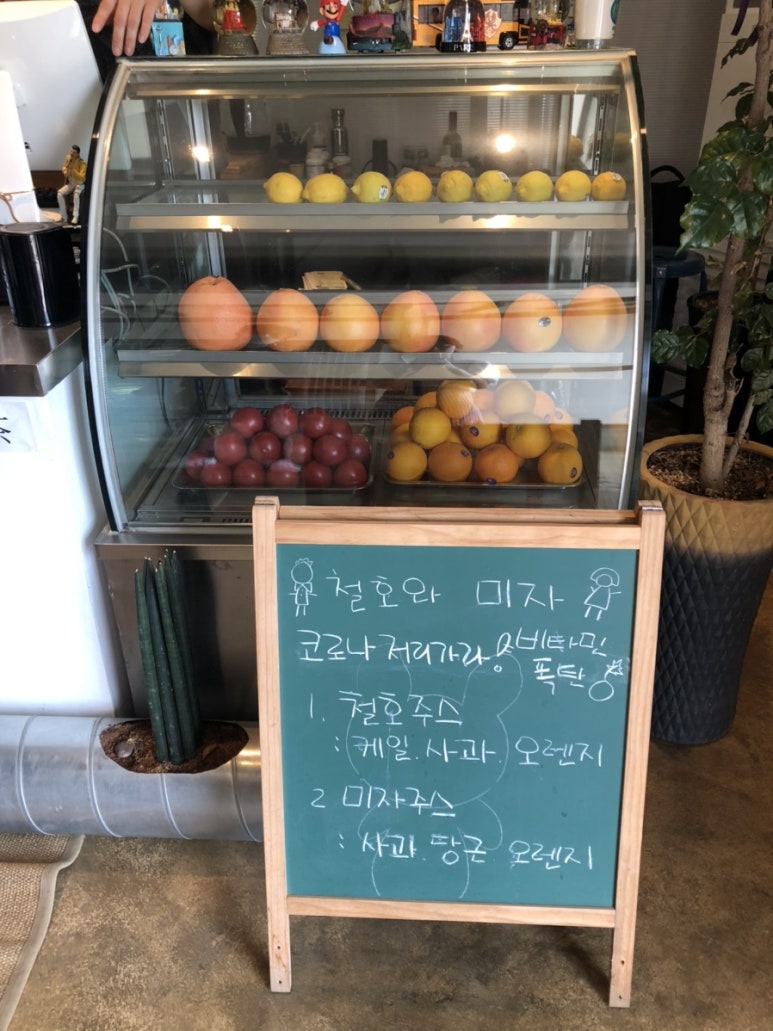 철호와 미자
코로나 저리가라! 비타민
폭탄
1. 철호주스
: 케일. 사과. 오렌지
2 미자주스
: 사과. 당근. 오렌지
PARIS